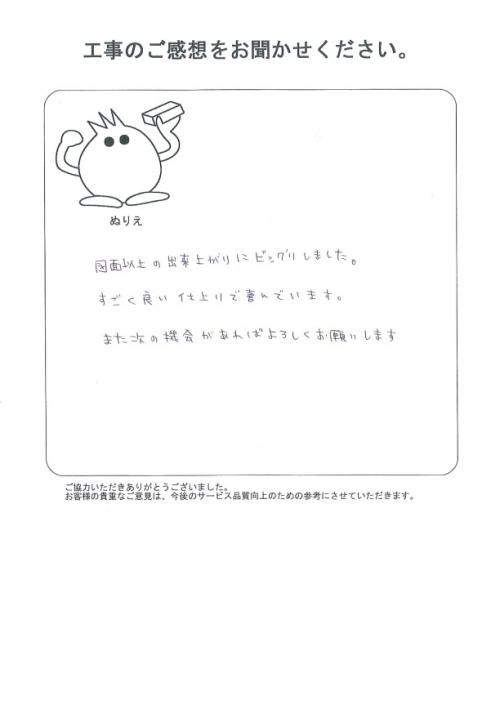 工事のご感想をお聞かせください。
ぬりえ
図面以上の出来上がりにビックリしました。
すごく良い仕上りで喜んでいます。
また次の機会があればよろしくお願いします
ご協力いただきありがとうございました。
お客様の貴重なご意見は、今後のサービス品質向上のための参考にさせていただきます。